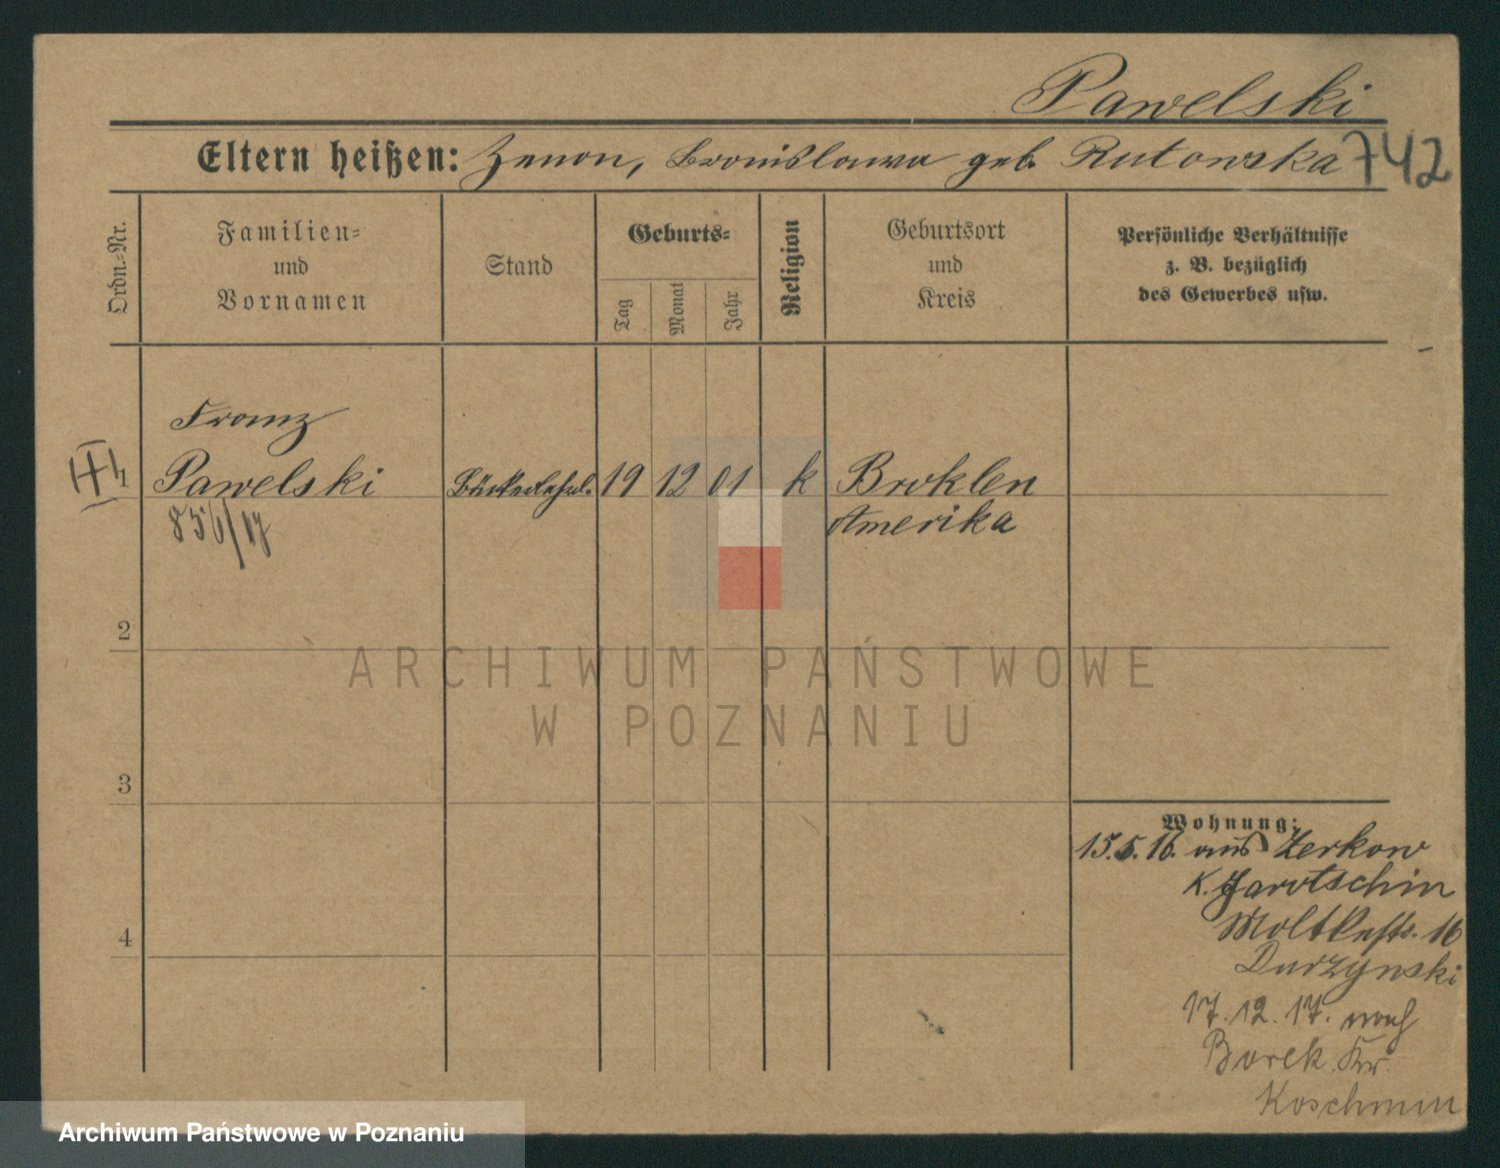 Pawelski
Eltern heißen: Zenon, Bronislawa geb. Rutowska 742
Ordn.-Nr.
Familien-
und
Vornamen
Stand
Geburts-
Tag
Monat
Jahr
Religion
Geburtsort
und
Kreis
Persönliche Verhältnisse
z. B. bezüglich
des Gewerbes usw.
Franz
1 Pawelski Bäckerlehrl. 19 12 01 k Broklen
856/17 Amerika
2
3
4
Wohnung:
15.5.16. aus Zerkow
K. Jarotschin
Moltkestr. 16
Durzynski
17.12.17. nach
Borek Kr
Koschmin
ARCHIWUM PAŃSTWOWE
W POZNANIU
Archiwum Państwowe w Poznaniu